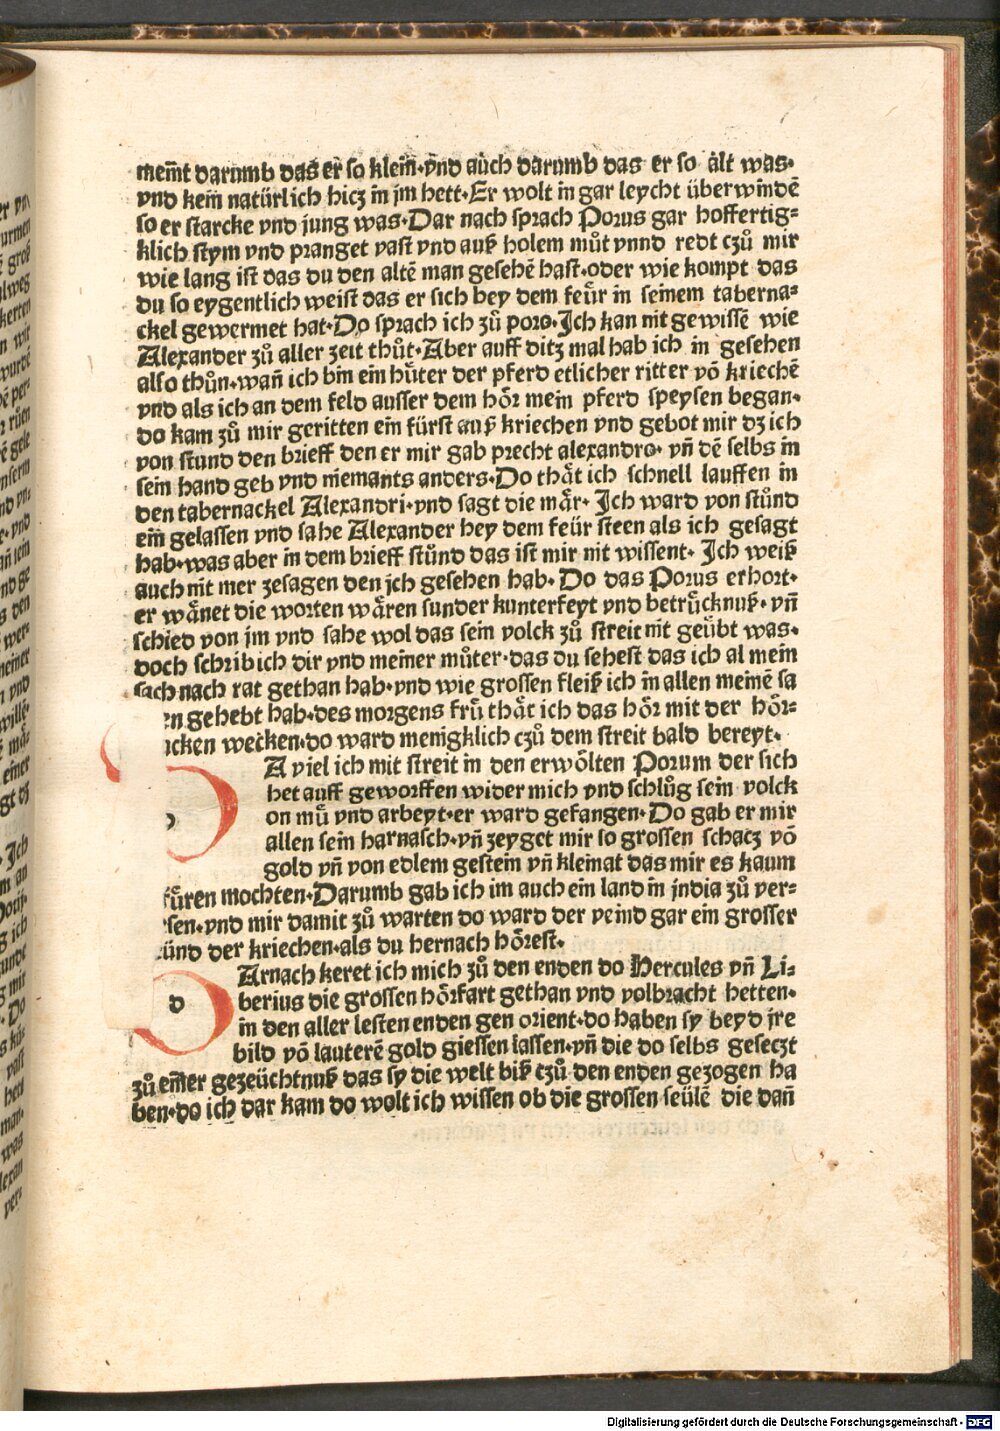 mem̄t darumb das er so klein·vnd auch darumb das er so alt was·
vnd kein natürlich hicz in jm hett·Er wolt in gar leycht überwindē
so er starcke vnd jung was·Dar nach sprach Porus gar hoffertig=
klich stym vnd pranget vast vnd auß holem můt vnnd redt czů mir
wie lang ist das du den altē man gesehē hast·oder wie kompt das
du so eygentlich weist das er sich bey dem feür in seinem taberna=
ckel gewermet hat·Do sprach ich zů poro·Jch kan nit gewissē wie
Alexander zů aller zeit thůt·Aber auff ditz mal hab ich in gesehen
also thůn·wan̄ ich bin ein hüter der pferd etlicher ritter vō kriechē
vnd als ich an dem feld ausser dem hör mein pferd speysen began·
do kam zů mir geritten ein fürst auß kriechen vnd gebot mir dz ich
von stund den brieff den er mir gab precht alexandro·vn̄ dē selbs in
sein hand geb vnd niemants anders·Do thät ich schnell lauffen in
den tabernackel Alexandri·vnd sagt die mär·Jch ward von stůnd
ein gelassen vnd sahe Alexander bey dem feür steen als ich gesagt
hab·was aber in dem brieff stůnd das ist mir nit wissent·Jch weiß
auch nit mer zesagen den jch gesehen hab·Do das Porus erhort·
er wänet die worten wären sunder kunterfeyt vnd betrücknuß·vn̄
schied von jm vnd sahe wol das sein volck zů streit nit geübt was·
doch schrib ich dir vnd meiner můter·das du sehest das ich al mein
sach nach rat gethan hab·vnd wie grossen fleiß ich in allen meinē sa
en gehebt hab·des morgens frü thät ich das hör mit der hör=
cken wecken·do ward menigklich czů dem streit bald bereyt·
A viel ich mit streit in den erwölten Porum der sich
het auff geworffen wider mich vnd schlůg sein volck
on mü vnd arbeyt·er ward gefangen·Do gab er mir
allen sein harnasch·vn̄ zeyget mir so grossen schacz vō
gold vn̄ von edlem gestein vn̄ kleinat das mir es kaum
füren mochten·Darumb gab ich im auch ein land in jndia zů ver=
sen·vnd mir damit zů warten do ward der veind gar ein grosser
ünd der kriechen·als du hernach hörest·
d Arnach keret ich mich zů den enden do Hercules vn̄ Li=
berius die grossen hörfart gethan vnd volbracht hetten·
in den aller lesten enden gen orient·do haben sy beyd jre
bild vō lauterē gold giessen lassen·vn̄ die do selbs geseczt
zů einer gezeüchtnuß das sy die welt biß czů den enden gezogen ha
ben·do ich dar kam do wolt ich wissen ob die grossen seülē die dan̄
Digitalisierung gefördert durch die Deutsche Forschungsgemeinschaft - DFG